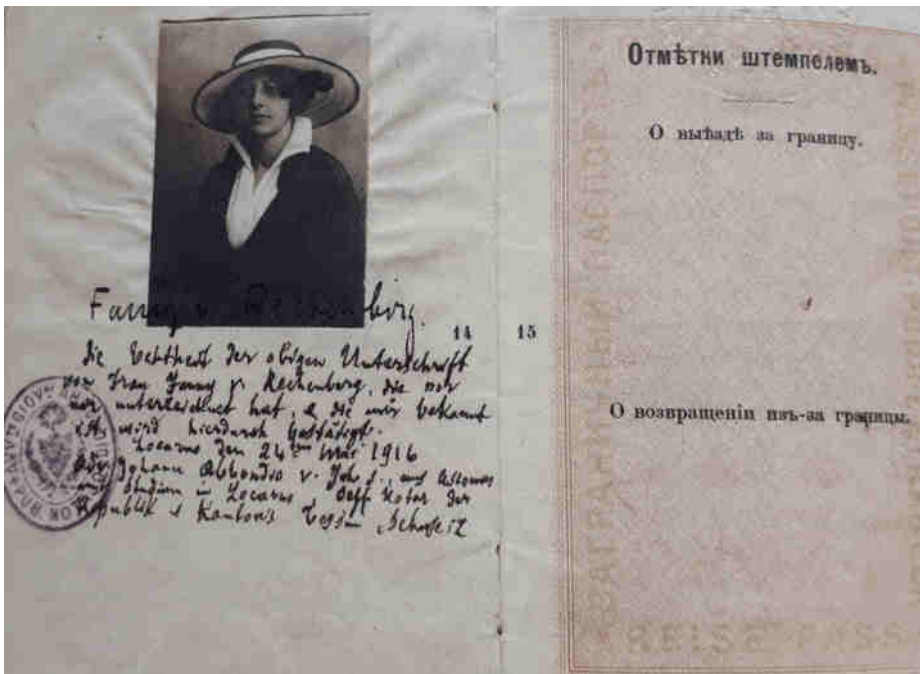 Fanny v. Rechenberg.
14
die Echtheit der obigen Unterschrift
von Frau Fanny v. Rechenberg, die vor
mir unterzeichnet hat, & die mir bekannt
ist, wird hierdurch bestätigt.
Locarno den 24ten Mai 1916
Adv. Johann Abbondio v. Joh. aus Ascona
Studium in Locarno, öeff Notar der
Republik & Kanton's Tessin, Schweiz
15
Отмѣтки штемпелемъ.
О выѣздѣ за границу.
О возвращеніи изъ-за границы.
ЗАГРАНИЧНЫЙ ПАСПОРТЪ
REISE-PASS